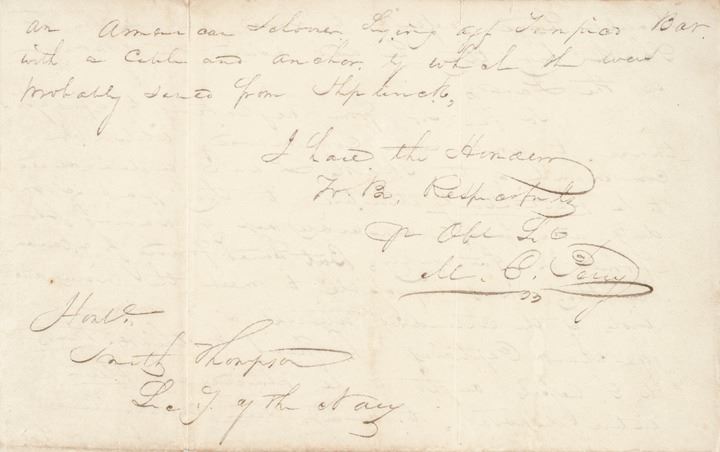 an American Schooner lying off Tampico Bar.
with a Cable and anchor, by which she was
probably saved from Shipwreck,
I have the Honour
To Be, Respectfully
yr Obt St
M. C. Perry
Honle.
Smith Thompson
Secy. of the Navy